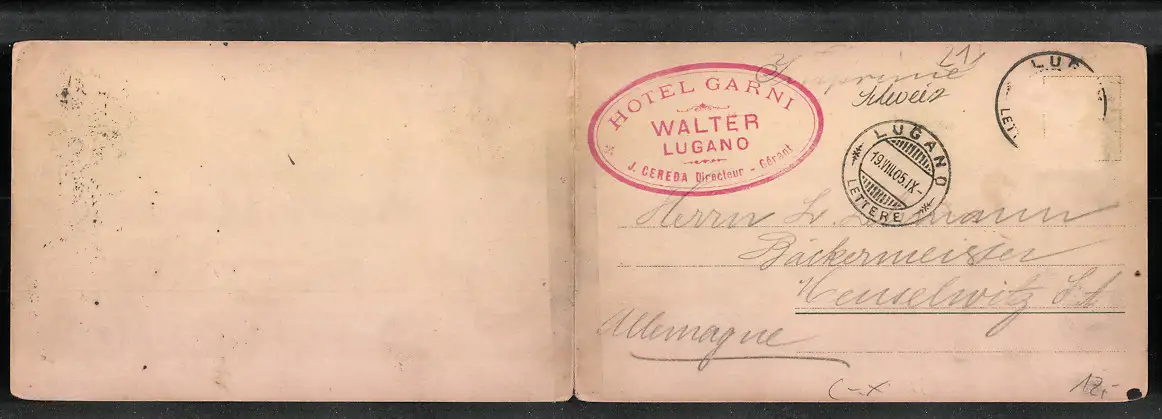 HOTEL GARNI
WALTER
LUGANO
J. CEREDA Directeur - Gérant
Imprimé
Schweiz
LUG
LETT
LUGANO
19.VIII.05.IX-
LETTERE
Herrn L.
Bäckermeister
Meuselwitz S. A.
Allemagne
12,-